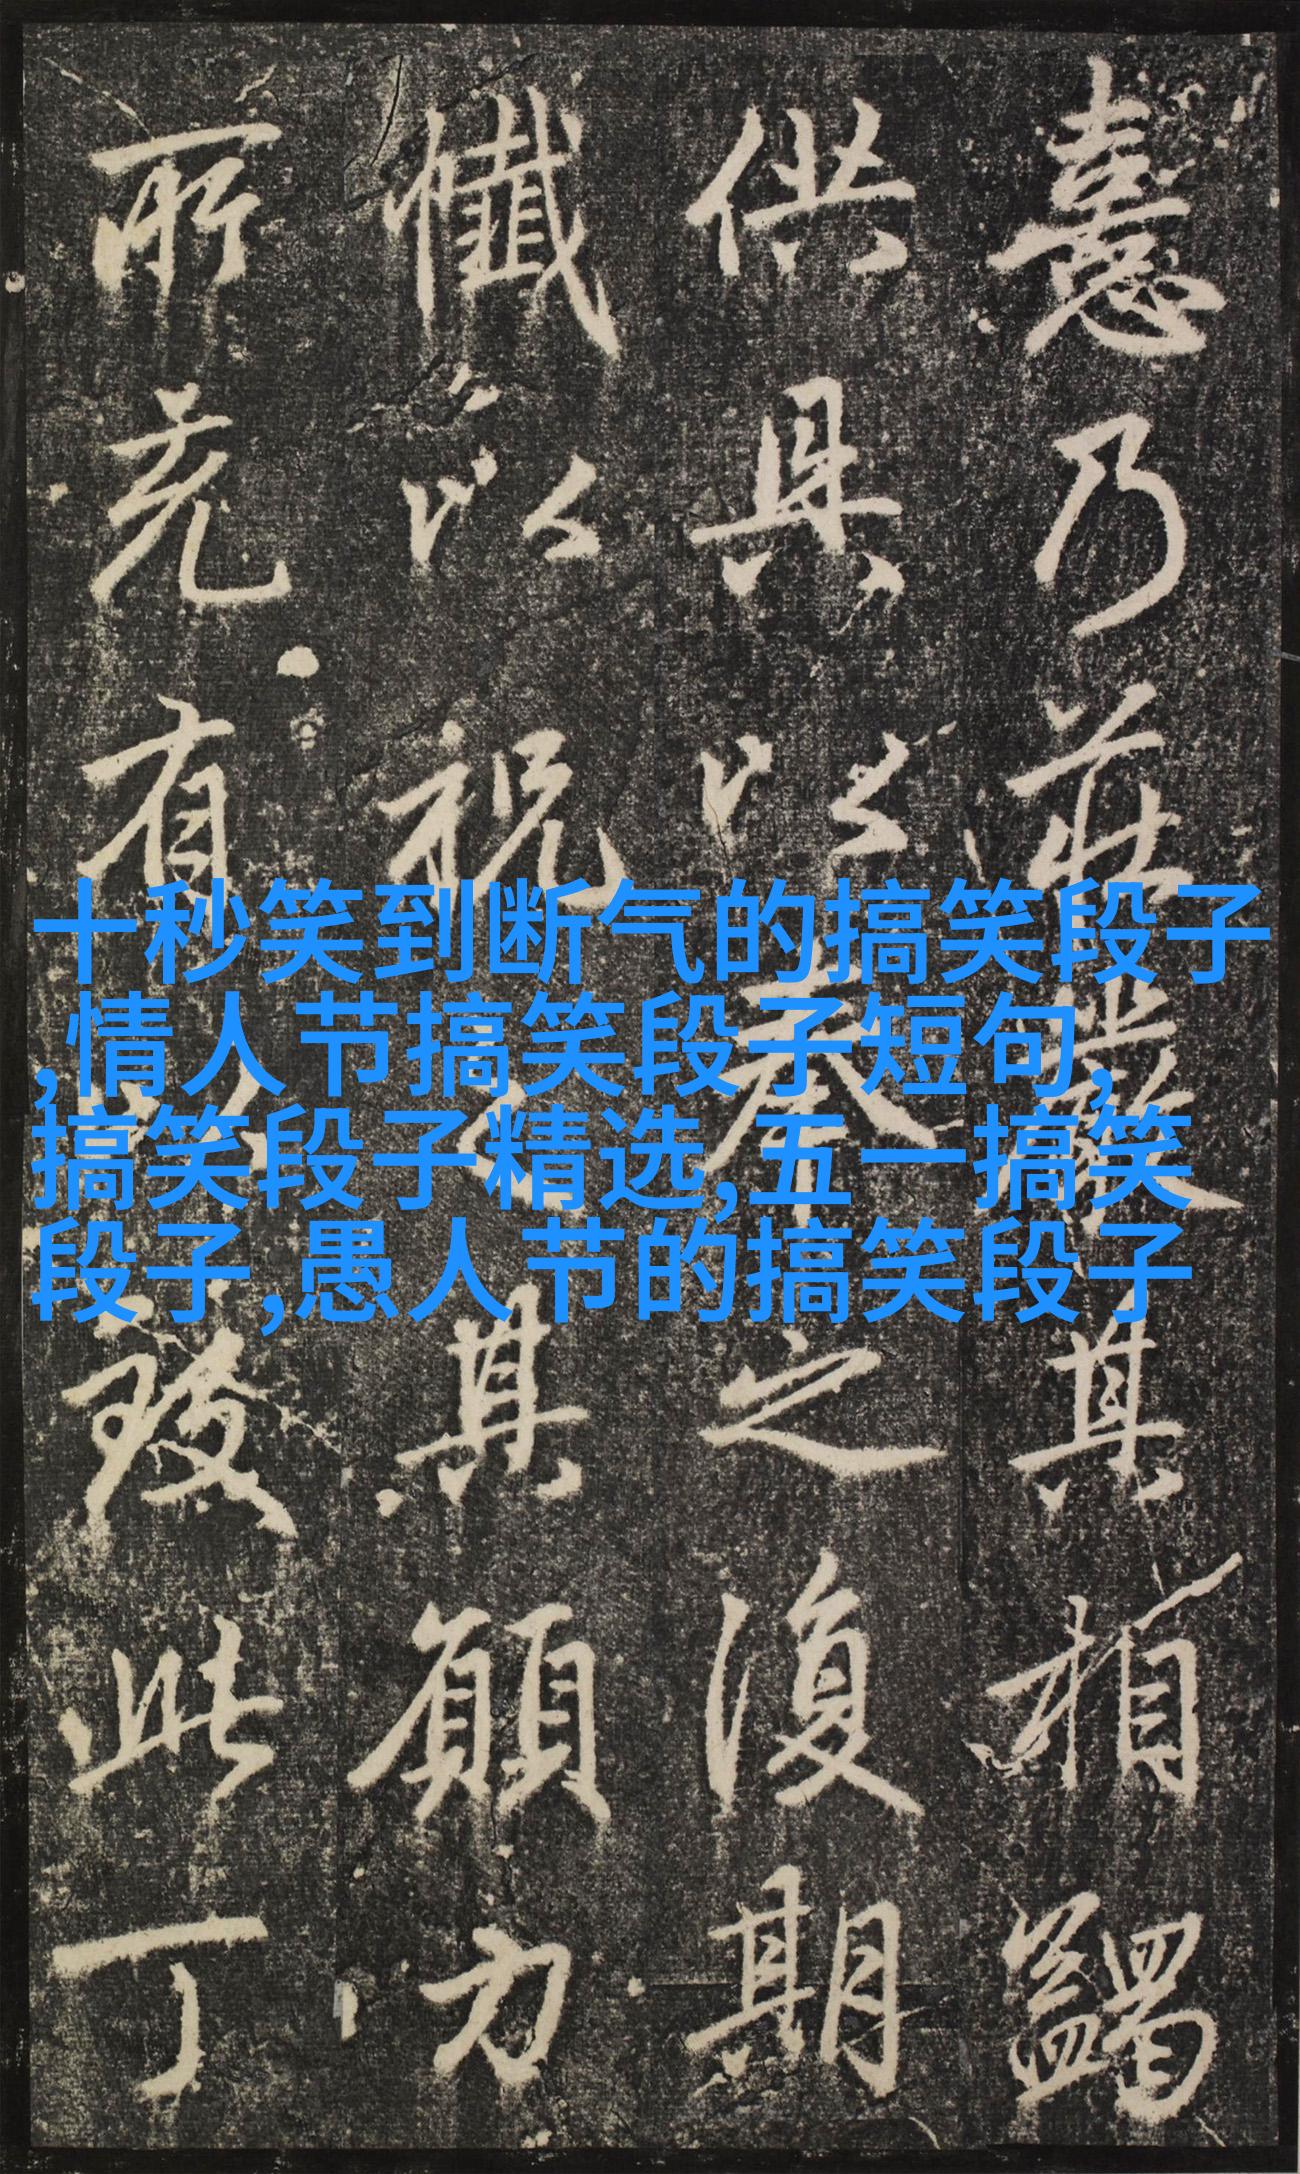 憙乃莊嚴其相蠲
供具以奉之復期
懺以祝之其願力
所羌有以發此丁
十秒笑到断气的搞笑段子
,情人节搞笑段子短句,
搞笑段子精选,五一搞笑
段子,愚人节的搞笑段子